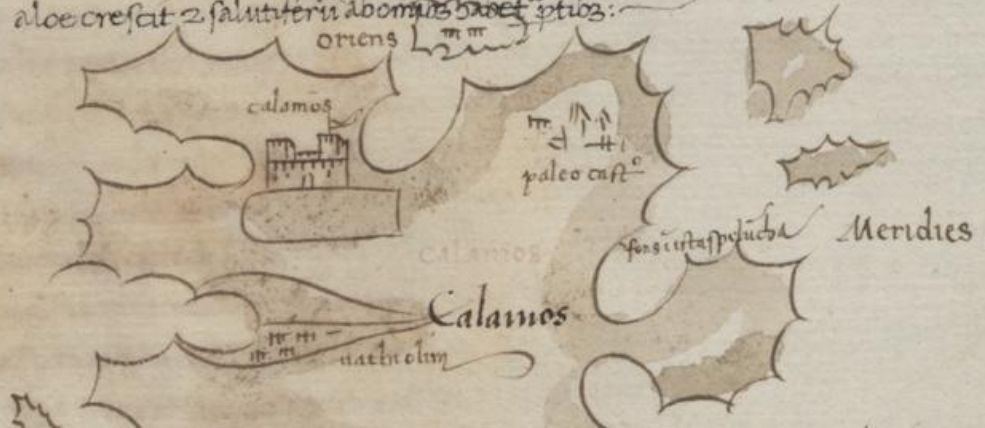 aloe crescit 2 salutiferū abomīos habet ptib3:
oriens
calamos
paleo cast°
fons iusta spelūcha
Meridies
Calamos
Calamos
uathi olim